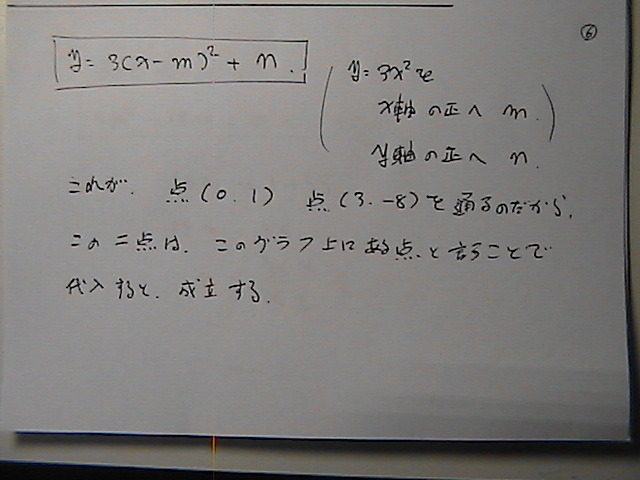 ⑥
y = 3(x - m)² + n.
y = 3x² を
x軸の正へ m.
y軸の正へ n.
これが. 点(0.1) 点(3.-8)を通るのだから.
この二点は. このグラフ上にある点と言うことで
代入すると. 成立する.